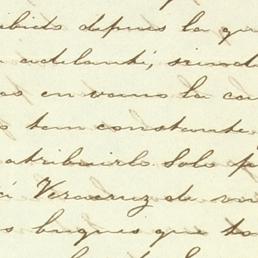 ibido depues la qu
adelante, siend
as en vano la ca
tan constante
atribuirlo solo p
á Veracruz de
s buques que to